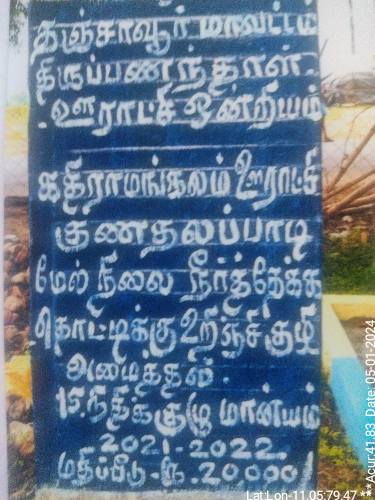 தஞ்சாவூர் மாவட்டம்
திருப்பணந்தாள்
ஊராட்சி ஒன்றியம்
கதிராமங்கலம் ஊராட்சி
குணதலப்பாடி
மேல் நிலை நீர்த்தேக்க
தொட்டிக்கு உறிஞ்சி குழி
அமைத்தல்.
15.நிதிக்குழு மான்யம்
2021-2022
மதிப்பீடு-ரூ.20000/
Lat Lon-11.05:79.47 *** Acur:41.83 Date: 05-01-2024